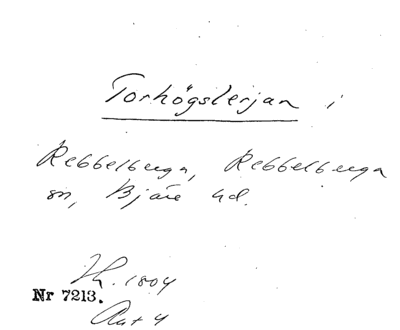 Torhögslerjan i
Rebbelberga, Rebbelberga
sn, Bjäre hd.
1804
Nr 7213.
Akt 4